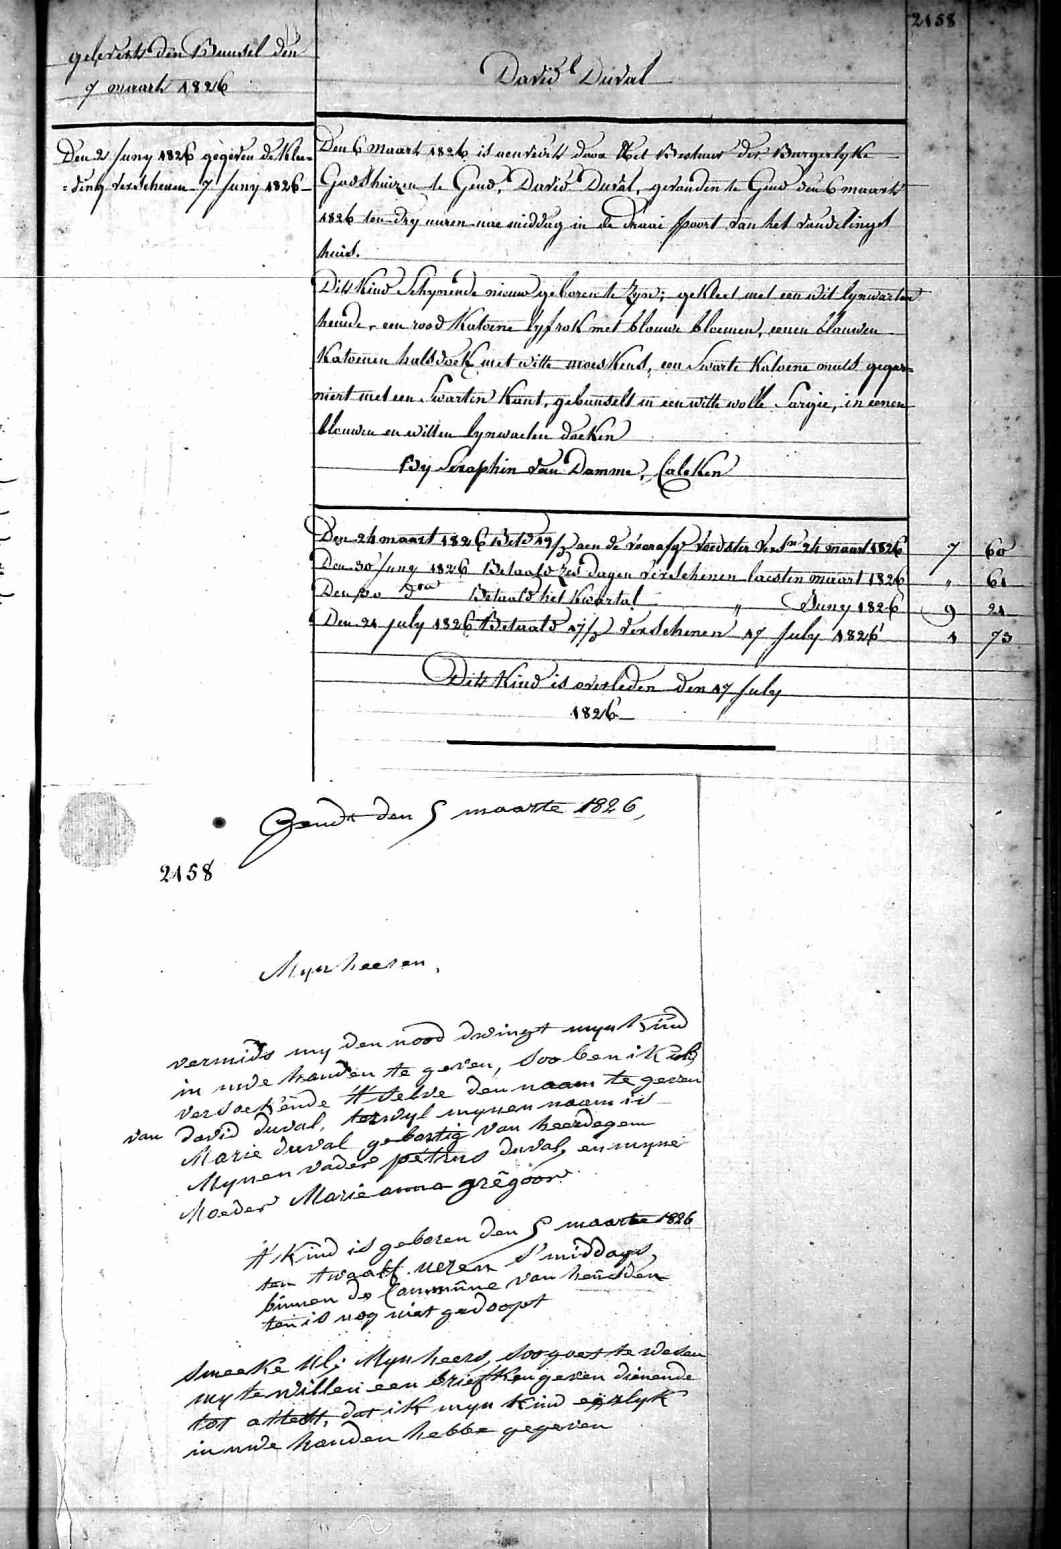 2158
gelevert den Bunsel den
7 maart 1826
David Duval
Den 2 Juny 1826 gegeven de Klee-
=ding verschenen 7 Juny 1826
Den 6 maart 1826 is aenveirt door Het Bestuur der Burgerlyke
Godshuizen te Gend, David Duval, gevonden te Gend den 6 maart
1826 ten dry uuren nae middag in de draai poort van het vondelingst
huis.
Dits Kind Schynende nieuw geboren te zyn; gekleet met een wit lynwaeten
hemde, een rood Katoene lyfrok met blouwe bloemen, eenen blouwen
Katoenen halsdoek met witte moeskens, een Swarte Katoene muts gegar-
niert met een Swarten Kant, gebunselt in een witte wolle Sargie, in eenen
blouwen en witten lynwaeten doeken
By Seraphin van Damme, Calcken
Den 24 maart 1826 Bet. 19/3 aen de voorafge Voedster vers.n 24 maart 1826 7 60
Den 30 Juny 1826 Betaald zes dagen verschenen laesten maart 1826 " 61
Den 30 do Betaald het Kwartal " Juny 1826 9 21
Den 21 July 1826 Betaald 17/3 verschenen 17 July 1826 1 73
Dits Kind is overleden den 17 July
1826
Gendt den 5 maarte 1826,
2158
Mynheeren,
vermids my den nood dwingt myn Kind
in uwe handen te geven, soo ben ik
versoekende 't selve den naam te geven
van david duval, terwyl mynen naem is
Marie duval gebortig van heerdegem
Mynen vader petrus duval, en myne
Moeder Marie anna grêgoor
't Kind is geboren den 5 maarte 1826
ten twaalf ueren s'middags,
binnen de Commúne van heúsden
ten is nog niet gedoopt
smeeke Ul; Mynheers, soo goet te wesen
my te willen een briefken geven dienende
tot attest, dat ik myn Kind eerlyk
in uwe handen hebbe gegeven